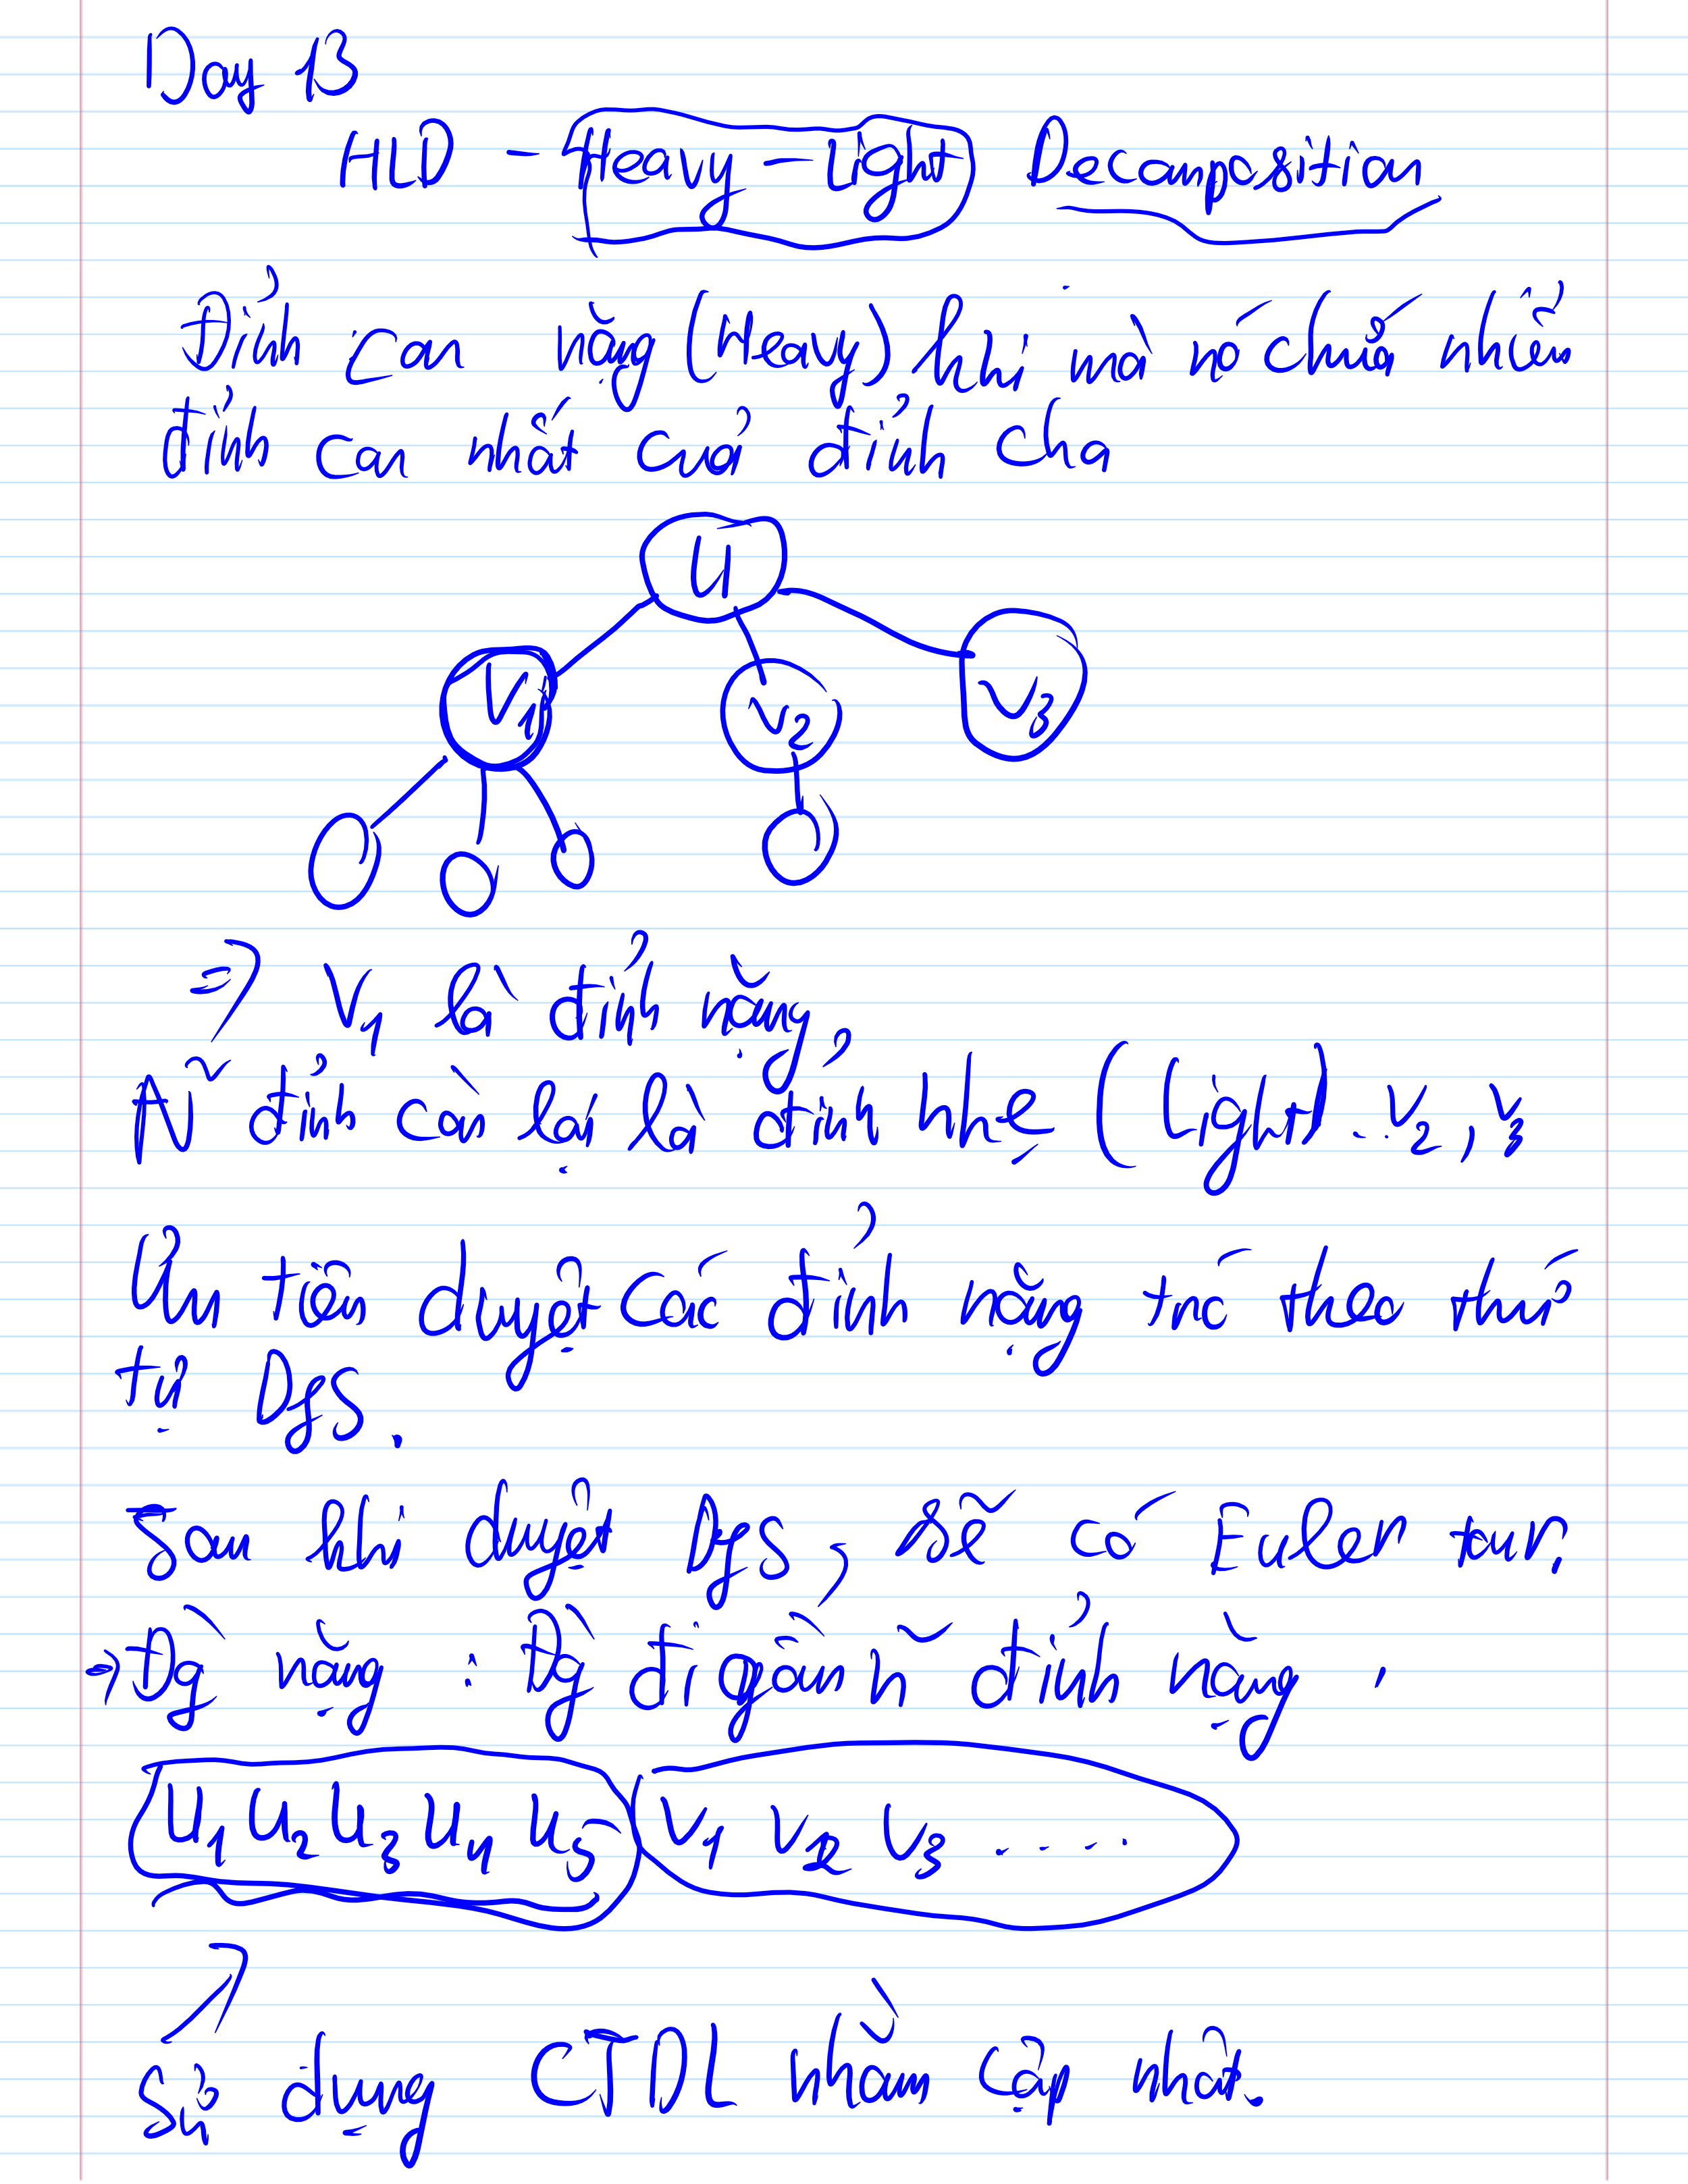 Day 13
HLD - Heavy-Light Decomposition
Đỉnh con nặng (Heavy) khi mà nó chứa nhiều
đỉnh con nhất của đỉnh cha
U
V1 V2 V3
=> V1 là đỉnh nặng
N~ đỉnh còn lại là đỉnh nhẹ (Light). V2, V3
Ưu tiên duyệt các đỉnh nặng trc theo thứ
tự Dfs.
Sau khi duyệt Dfs, sẽ có Euler tour.
-> Đg nặng : Đg đi gồm n~ đỉnh nặng.
U1 U2 U3 U4 U5 V1 V2 V3 .....
Sử dụng CTDL nhằm cập nhật.